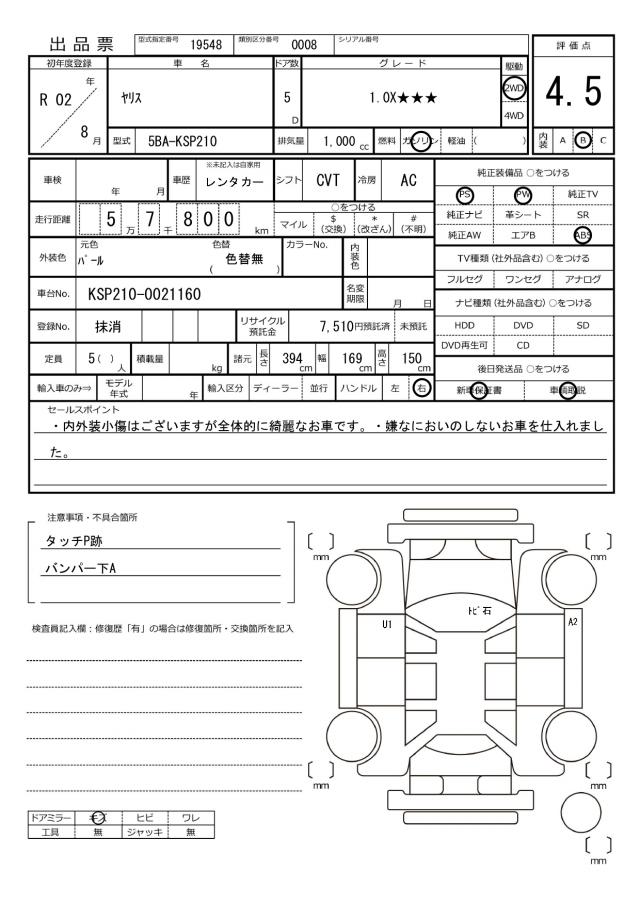 出品票 型式指定番号 19548 類別区分番号 0008 シリアル番号
評価点
4.5
内装 A B C
初年度登録 車名 ドア数 グレード 駆動
R 02 年 / 8 月 ヤリス 5 D 1.0X★★★ 2WD 4WD
型式 5BA-KSP210 排気量 1,000 cc 燃料 ガソリン 軽油 ( )
車検 年 月 車歴 ※未記入は自家用 レンタカー シフト CVT 冷房 AC
走行距離 5 万 7 千 8 0 0 km
○をつける
マイル $(交換) *(改ざん) #(不明)
外装色 元色 パール 色替 ( 色替無 ) カラーNo. 内装色
車台No. KSP210-0021160 名変期限 月 日
登録No. 抹消 リサイクル預託金 7,510円預託済 未預託
定員 5( ) 人 積載量 kg 諸元 長さ 394 cm 幅 169 cm 高さ 150 cm
輸入車のみ⇒ モデル年式 年 輸入区分 ディーラー 並行 ハンドル 左 右
純正装備品 ○をつける
PS PW 純正TV
純正ナビ 革シート SR
純正AW エアB ABS
TV種類 (社外品含む) ○をつける
フルセグ ワンセグ アナログ
ナビ種類 (社外品含む) ○をつける
HDD DVD SD
DVD再生可 CD
後日発送品 ○をつける
新車保証書 車輌取説
セールスポイント
・内外装小傷はございますが全体的に綺麗なお車です。・嫌なにおいのしないお車を仕入れまし
た。
注意事項・不具合箇所
タッチP跡
バンパー下A
検査員記入欄：修復歴「有」の場合は修復箇所・交換箇所を記入
ドアミラー キズ ヒビ ワレ
工具 無 ジャッキ 無
mm mm
トビ石
U1 A2
mm mm
mm